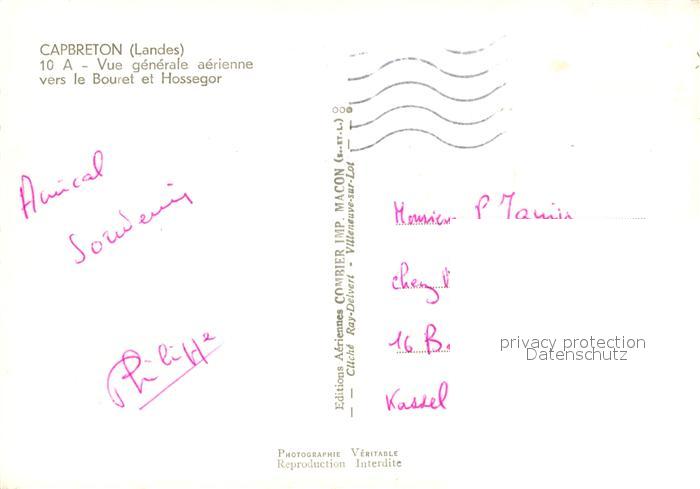 CAPBRETON (Landes)
10 A - Vue générale aérienne
vers le Bouret et Hossegor
Amical
Souvenir
Philippe
Editions Aériennes COMBIER IMP. MACON (S.-ET-L.)
Cliché Ray-Delvert - Villeneuve-sur-Lot
Monsieur P
chez
16 B.
Kassel
privacy protection
Datenschutz
PHOTOGRAPHIE VÉRITABLE
Reproduction Interdite